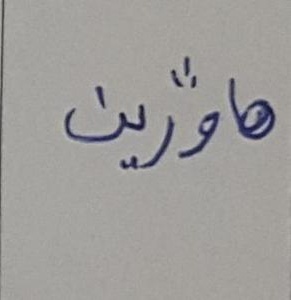 هاوژین